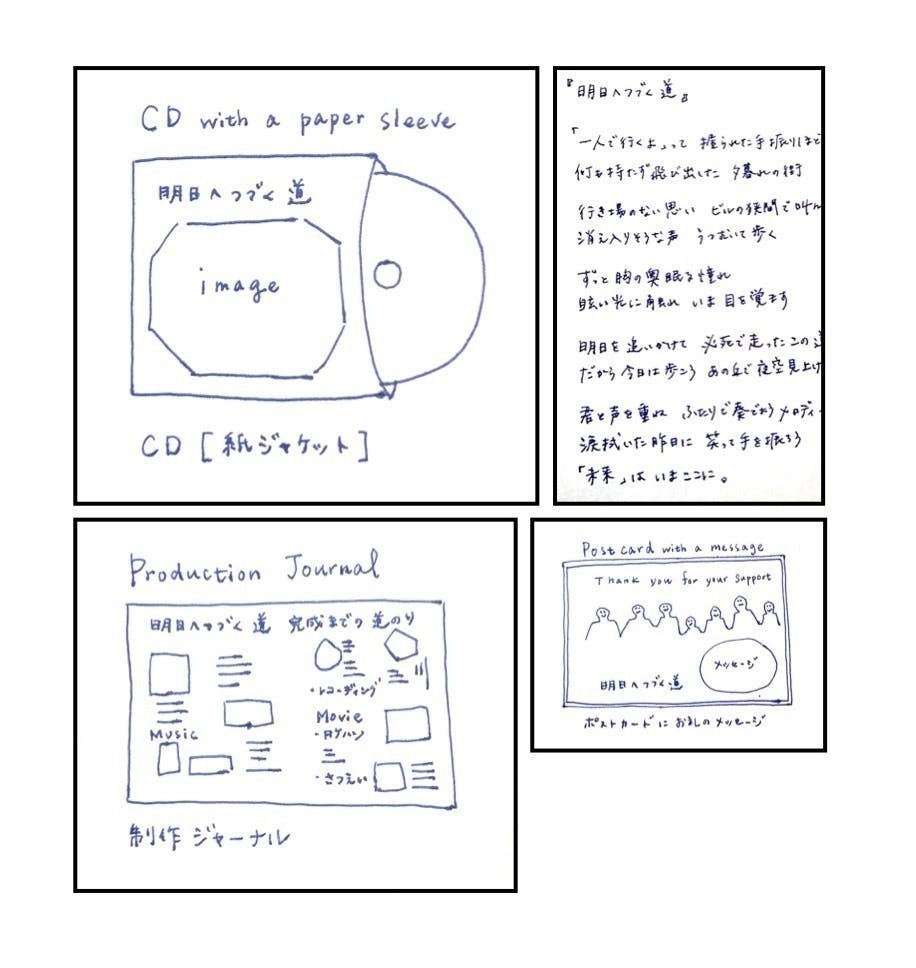 CD with a paper sleeve
明日へつづく道
image
CD [紙ジャケット]
『明日へつづく道』
「一人で行くよ」って 握られた手振りほど
何も持たず飛び出した 夕暮れの街
行き場のない思い ビルの狭間で叫ん
消え入りそうな声 うつむいて歩く
ずっと胸の奥眠る憧れ
眩い光に触れ いま目を覚ます
明日を追いかけて 必死で走ったこの道
だから今日は歩こう あの丘で夜空見上げ
君と声を重ね ふたりで奏でおう メロディー
涙拭いた昨日に 笑って手を振ろう
「未来」は いまここに。
Production Journal
明日へつづく道 完成までの道のり
・レコーディング
Music
Movie
・ロケハン
・さつえい
制作ジャーナル
Post card with a message
Thank you for your support
メッセージ
明日へつづく道
ポストカードに お礼のメッセージ